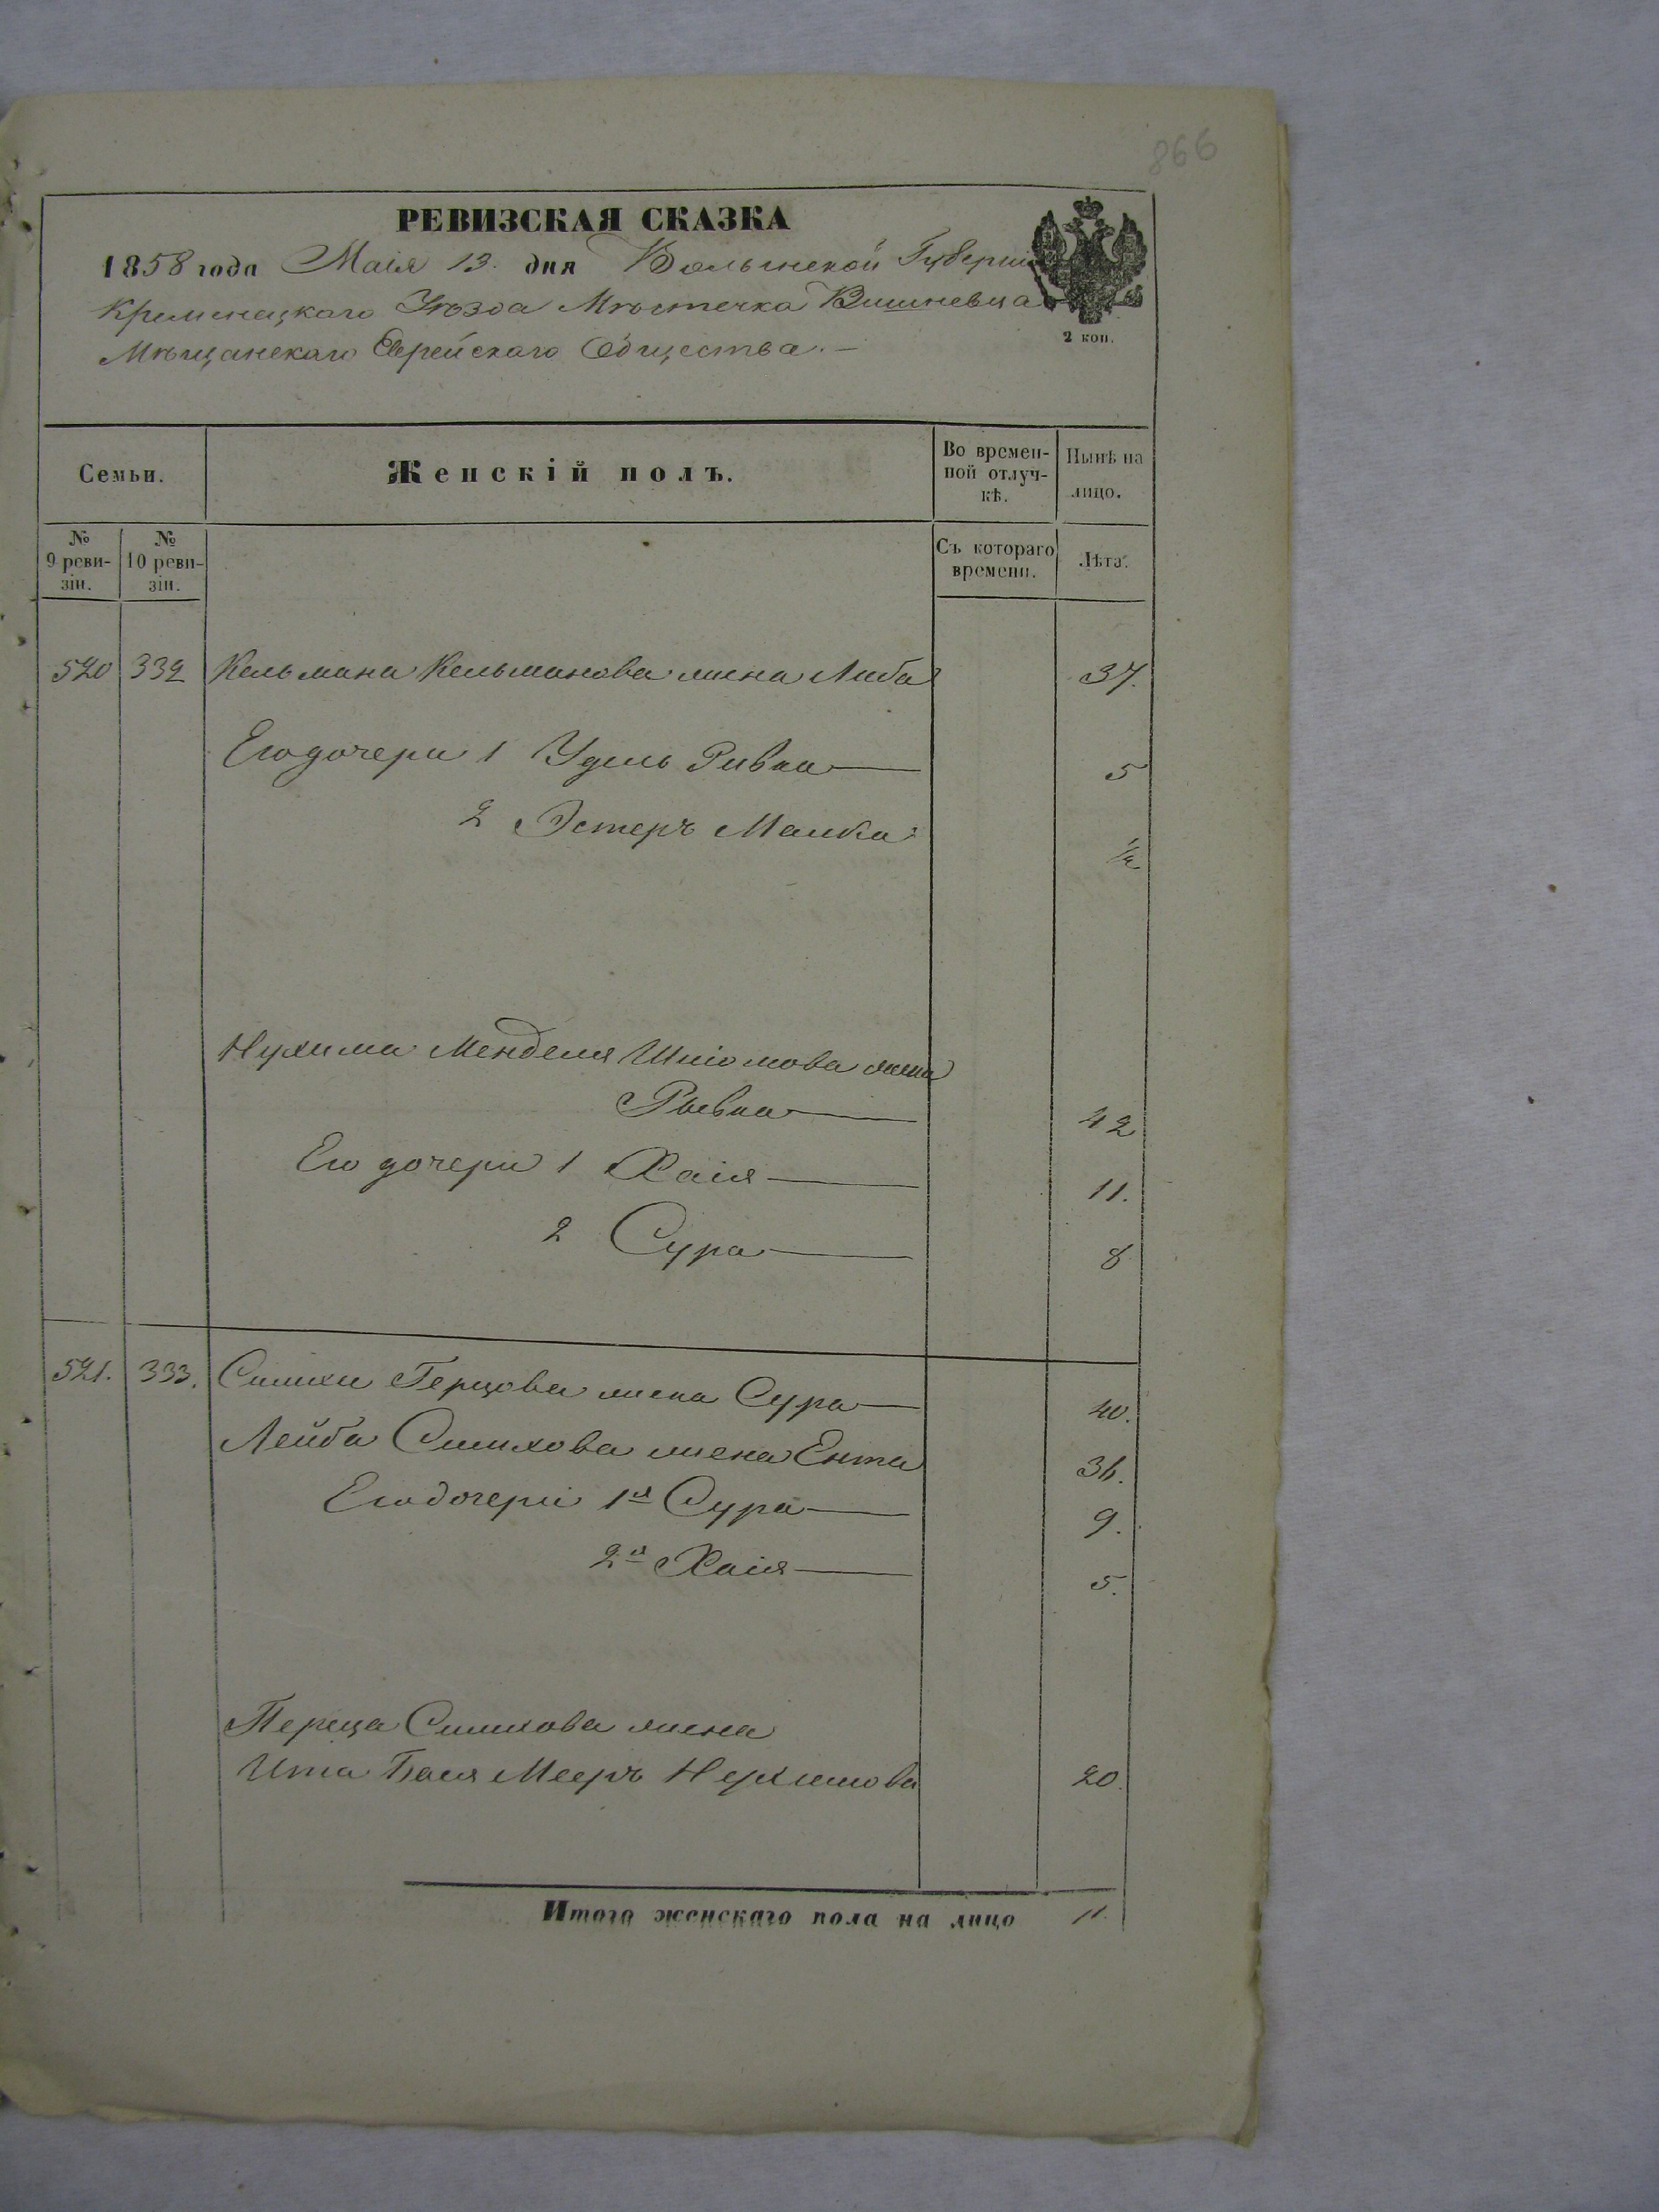 866
РЕВИЗСКАЯ СКАЗКА
1858 года Маія 13. дня Волынской Губерніи
Кременецкаго Уѣзда Мѣстечка Вишневца
Мѣщанскаго Еврейскаго Общества. —
2 коп.
Семьи.
Женскій полъ.
Во времен-
ной отлуч-
кѣ.
Нынѣ на
лицо.
№
9 реви-
зіи.
№
10 реви-
зіи.
Съ котораго
времени.
Лѣта.
520 332 Кельмана Кельманова жена Либа 37.
Его дочери 1 Удель Ривка 5
2 Эстеръ Малка
Нухима Менделя Шліомова жена
Рывка 42
Его дочери 1 Хаія 11.
2 Сура 8
521. 333. Симхи Герцова жена Сура 40.
Лейба Симхова жена Ента 36.
Его дочери 1я Сура 9.
2я Хаія 5.
Переца Симхова жена
Ита Бася Мееръ Нухимова 20.
Итого женскаго пола на лицо 11.